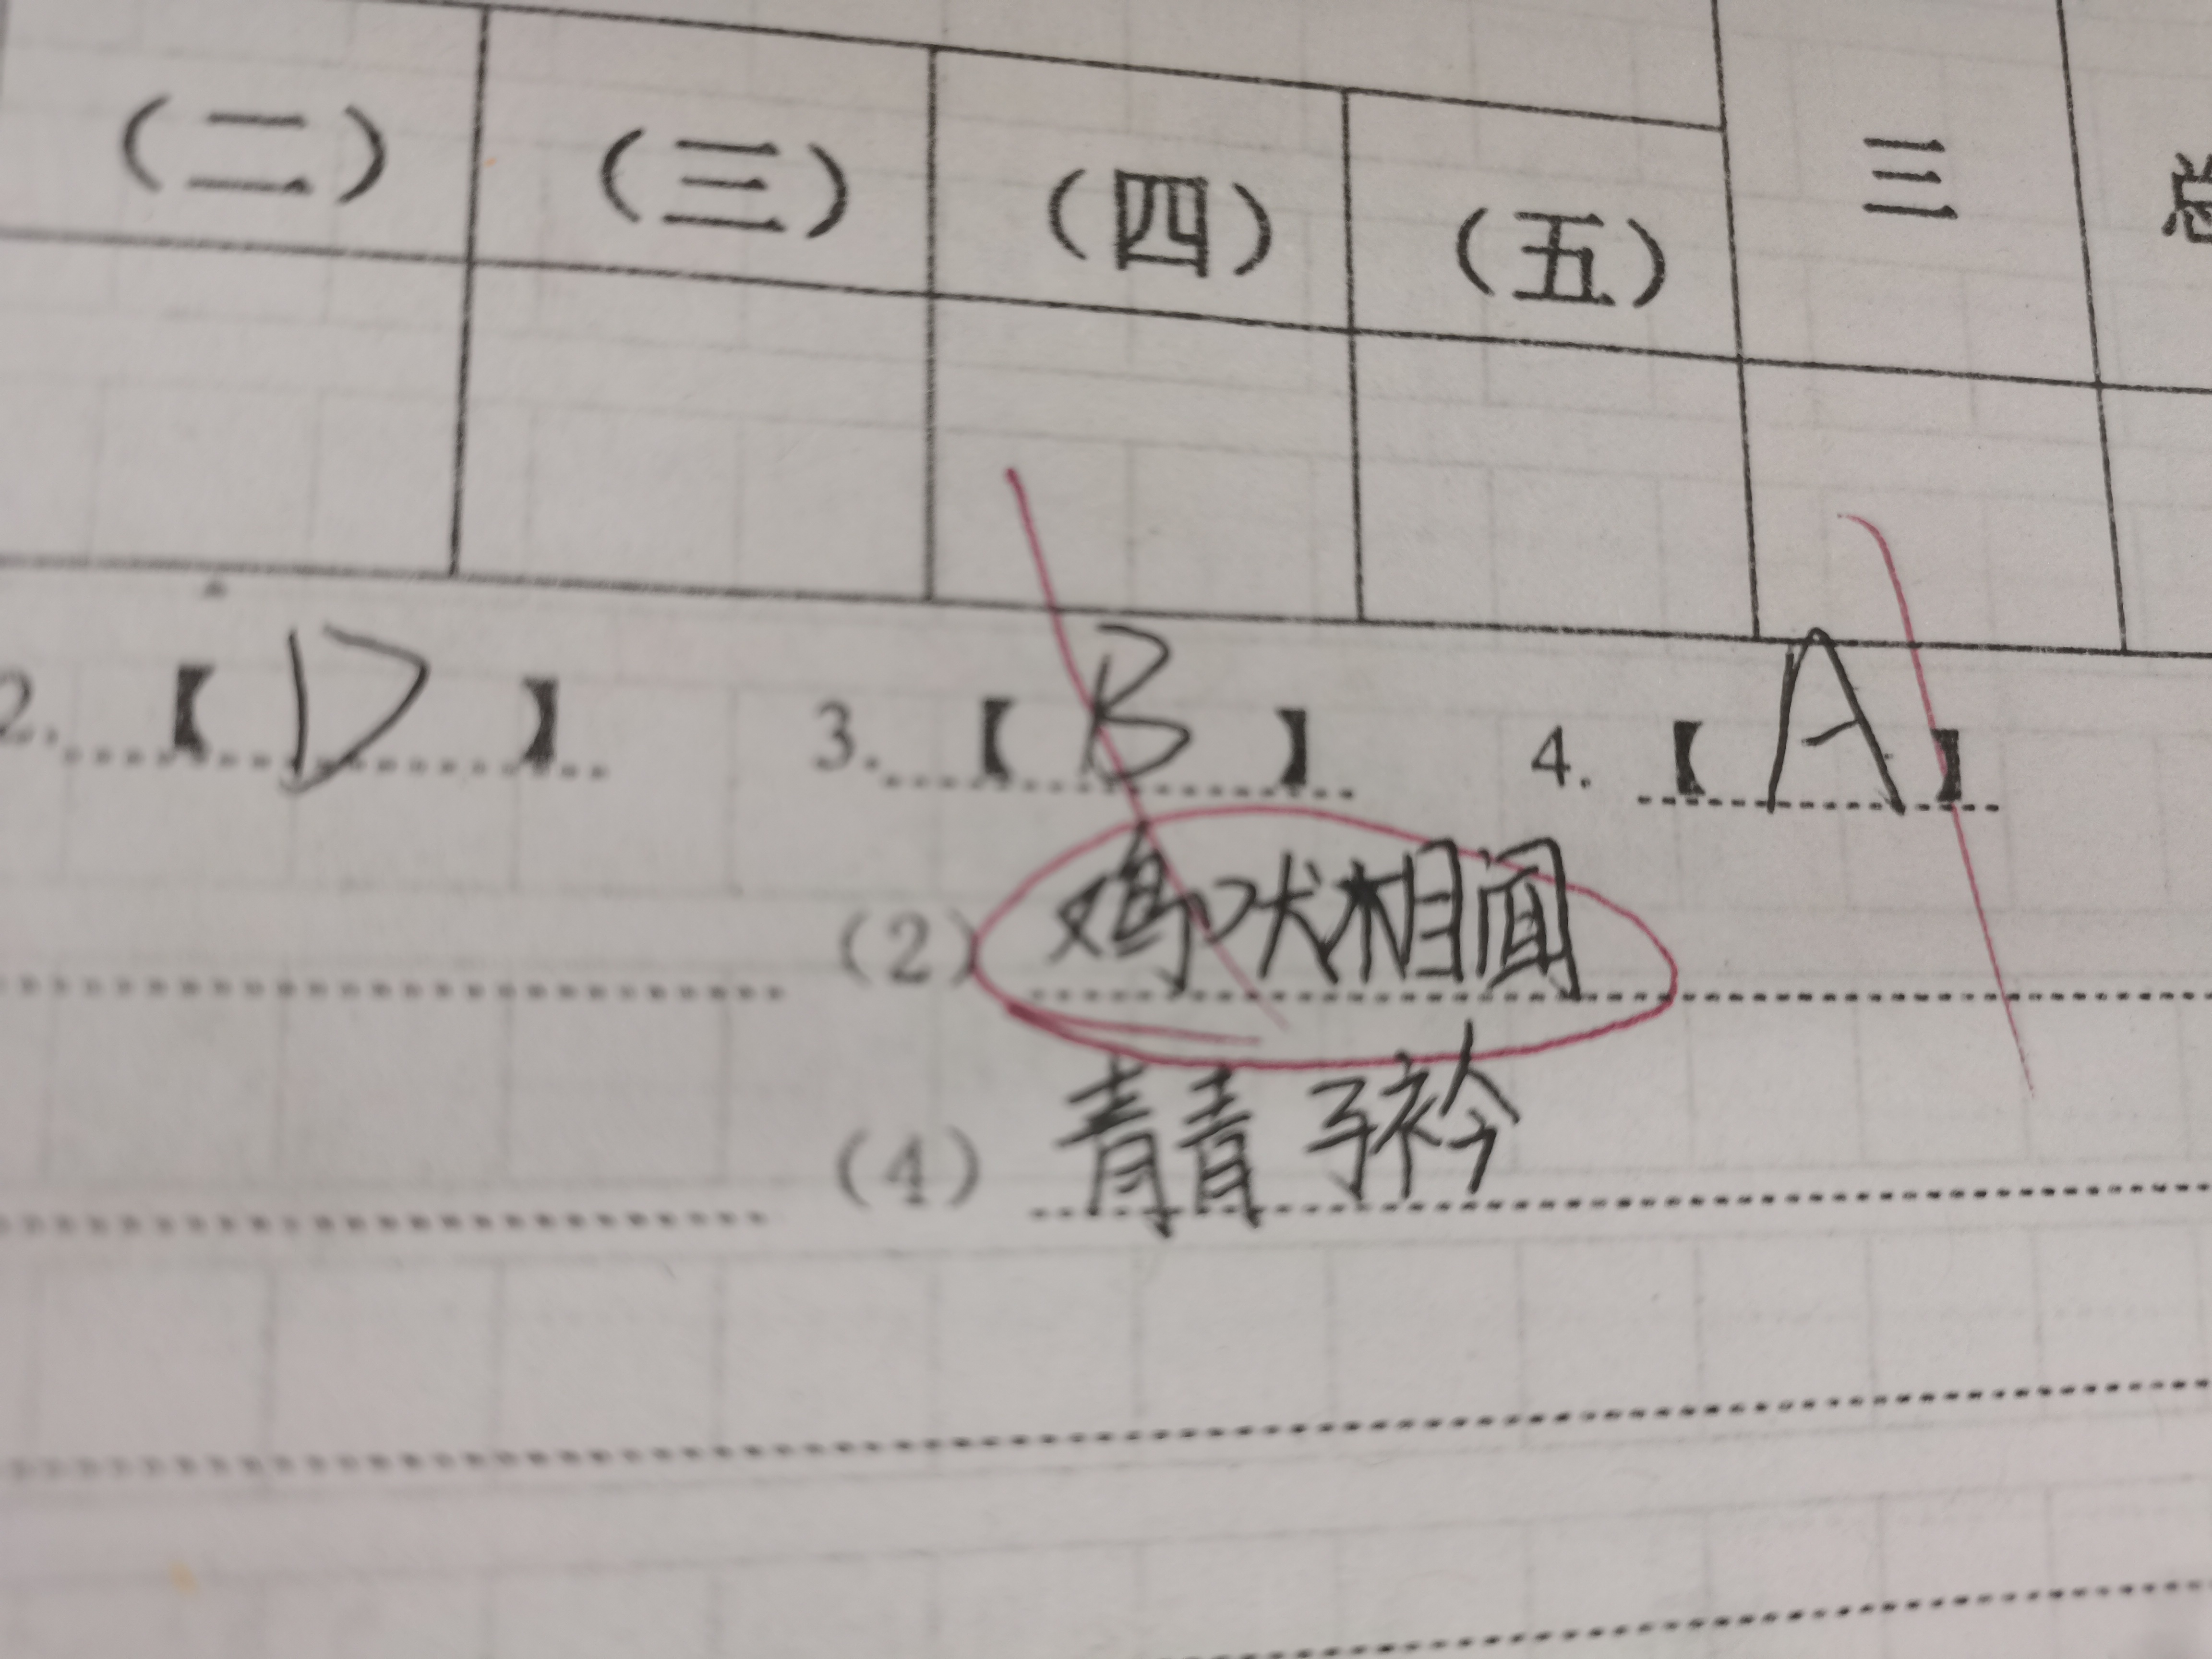 （二） （三） （四） （五） 三 总
2. 【 D 】 3. 【 B 】 4. 【 A 】
（2） 鸡吠相闻
（4） 青青子衿